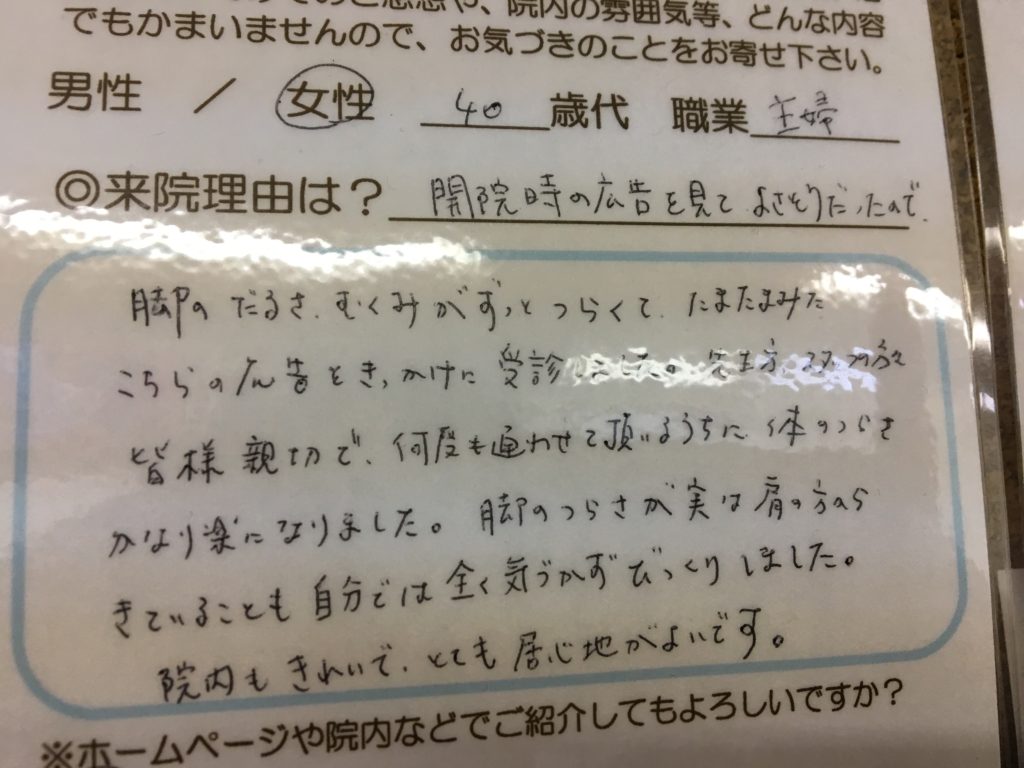 のご感想や、院内の雰囲気等、どんな内容
でもかまいませんので、お気づきのことをお寄せ下さい。
男性 / 女性 40 歳代 職業 主婦
◎来院理由は? 開院時の広告を見て よさそうだったので、
脚のだるさ、むくみがずっとつらくて、たまたまみた
こちらの広告をきっかけに受診しました。先生方、スタッフの方々
皆様親切で、何度も通わせて頂いるうちに、体のつらさ
かなり楽になりました。脚のつらさが実は肩の方から
きていることも自分では全く気づかずびっくりしました。
院内もきれいで、とても居心地がよいです。
※ホームページや院内などでご紹介してもよろしいですか?